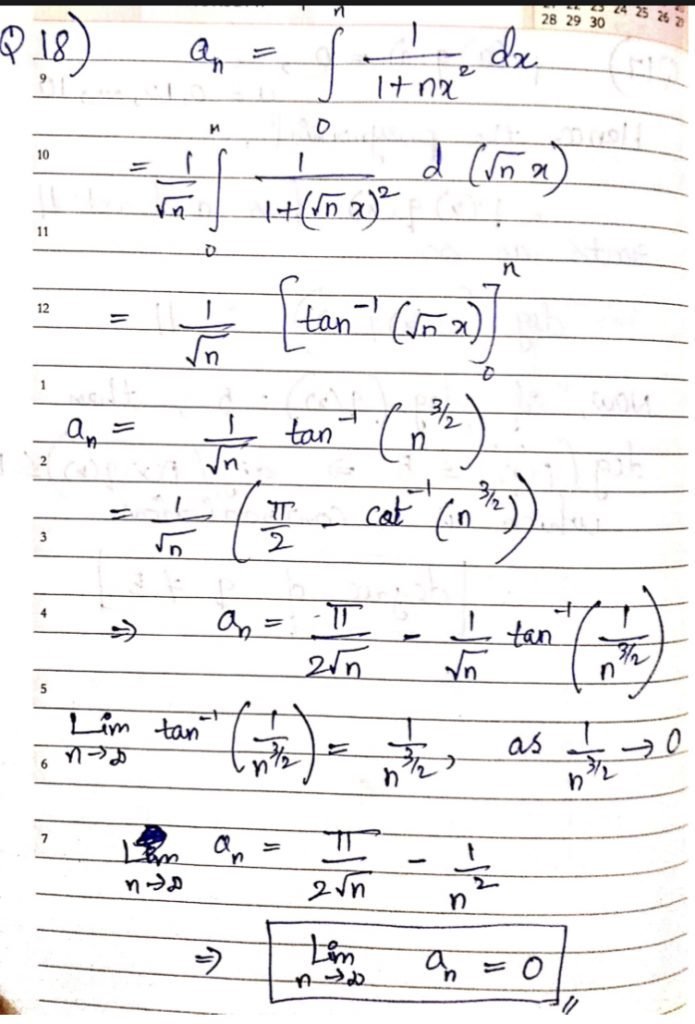 24 25 26
28 29 30
Q 18) aₙ = ∫₀ⁿ 1/(1+nx²) dx
9
10 = 1/√n ∫₀ⁿ 1/(1+(√n x)²) d (√n x)
11
12 = 1/√n [tan⁻¹ (√n x)]₀ⁿ
1
aₙ = 1/√n tan⁻¹ (n^(3/2))
2
= 1/√n (π/2 - cot⁻¹ (n^(3/2)))
3
4 ⇒ aₙ = π/(2√n) - 1/√n tan⁻¹ (1/n^(3/2))
5
Lim n→∞ tan⁻¹ (1/n^(3/2)) = 1/n^(3/2), as 1/n^(3/2) → 0
6
7 Lim n→∞ aₙ = π/(2√n) - 1/n²
⇒ Lim n→∞ aₙ = 0 //